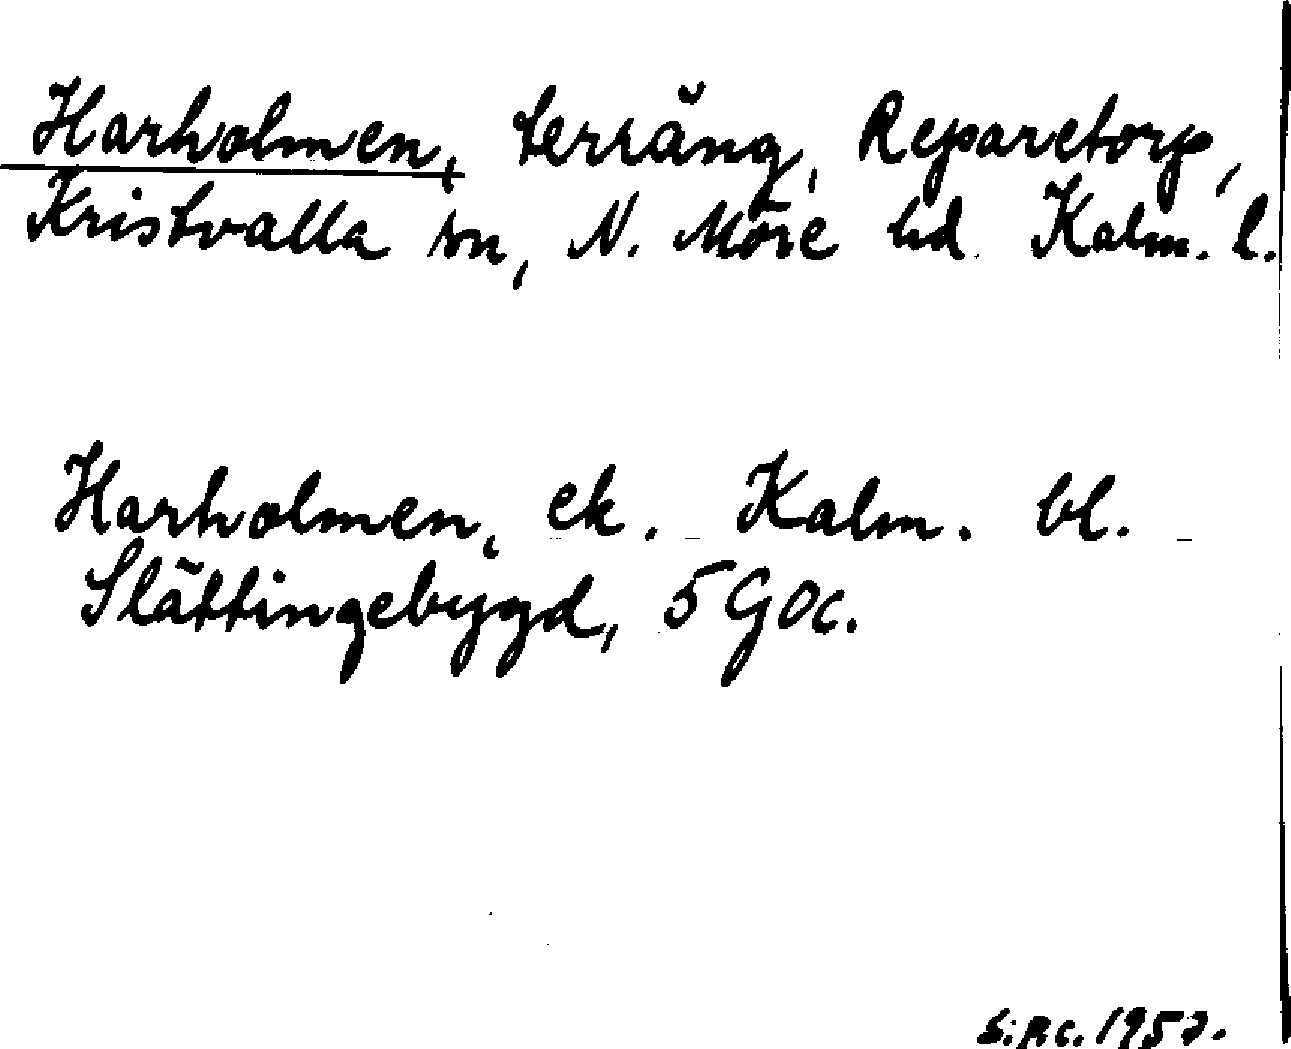 Harholmen, terräng, Reparetorp,
Kristvalla sn, N. Möre hd Kalm. l.
Harholmen, ek. Kalm. bl.
Slättingebygd, 5 G0c.
1957.